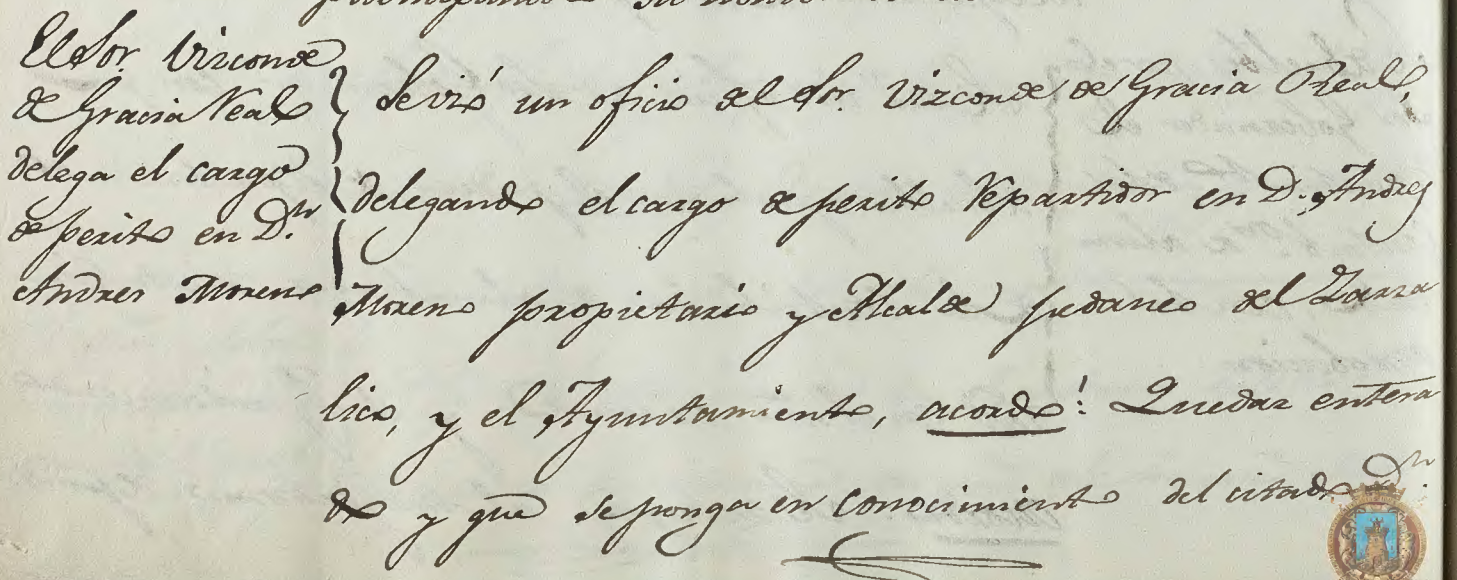 El Sor. Vizconde
de Gracia Real
delega el cargo
de perito en Dn.
Andres Moreno
Se vió un oficio del Sor. Vizconde de Gracia Real,
delegando el cargo de perito repartidor en D. Andres
Moreno propietario y Alcalde pedaneo del Zarza
lico, y el Ayuntamiento, acordó: Quedar entera
do y que se ponga en conocimiento del citado Dn.